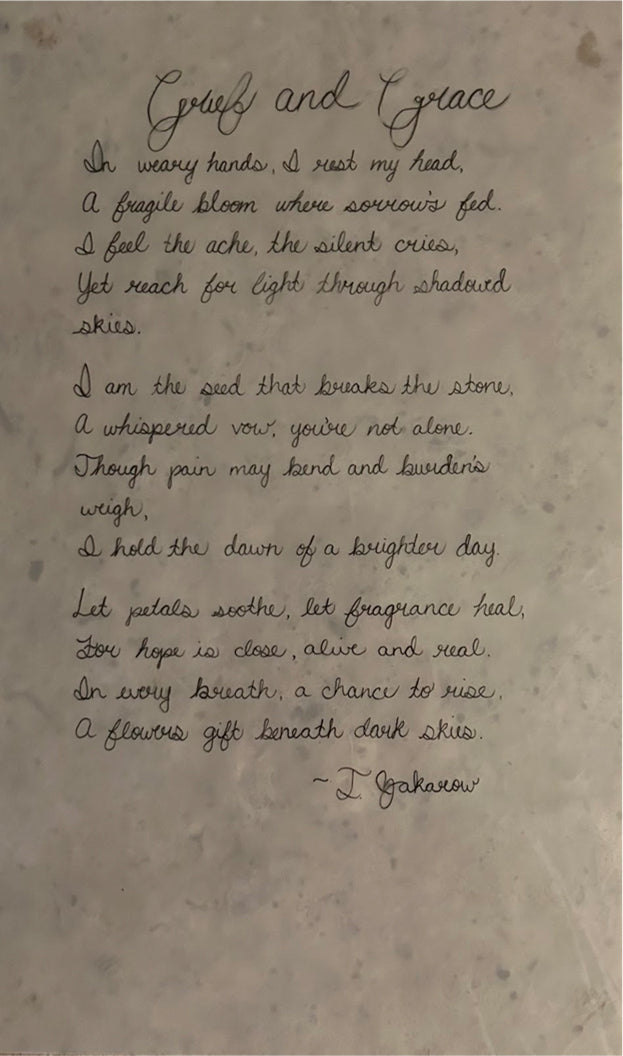 Grief and Grace
In weary hands, I rest my head,
A fragile bloom where sorrow's fed.
I feel the ache, the silent cries,
Yet reach for light through shadowed
skies.
I am the seed that breaks the stone,
A whispered vow, you're not alone.
Though pain may bend and burden's
weigh,
I hold the dawn of a brighter day.
Let petals soothe, let fragrance heal,
For hope is close, alive and real.
In every breath, a chance to rise,
A flowers gift beneath dark skies.
~ I.